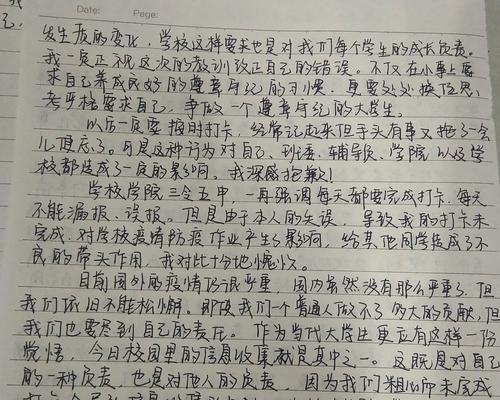 Date:    Page:
发生质的变化，学校这样要求也是对我们每个学生的成长负责。
我一定正视这次的教训改正自己的错误。不仅在小事上要
求自己养成良好的遵章守纪的习惯，更要处处换位思
考严格要求自己，争做一个遵章守纪的大学生。
以后一定要按时打卡，经常记起来但手头有事又拖了一会
儿便忘了。可是这种行为对自己、班委、辅导员、学院以及学
校都造成了一定的影响。我深感抱歉！
学校学院三令五申，一再强调每天都要完成打卡，每天
不能漏报、误报。但是由于本人的失误，导致我的打卡未
完成，对学校疫情防疫作业产生了影响，给其他同学造成了不
良的带头作用，我对此十分地愧疚。
目前国外的疫情仍很严重，国内虽然没有那么严重了，但
我们依旧不能松懈。即使我们一个普通人做不了多大的贡献，但
我们也要尽到自己的责任。作为当代大学生更应有这样一份
觉悟，今日校园里的信息收集就是其中之一。这既是对自己
的一种负责，也是对他人的负责，因为我们粗心所未完成